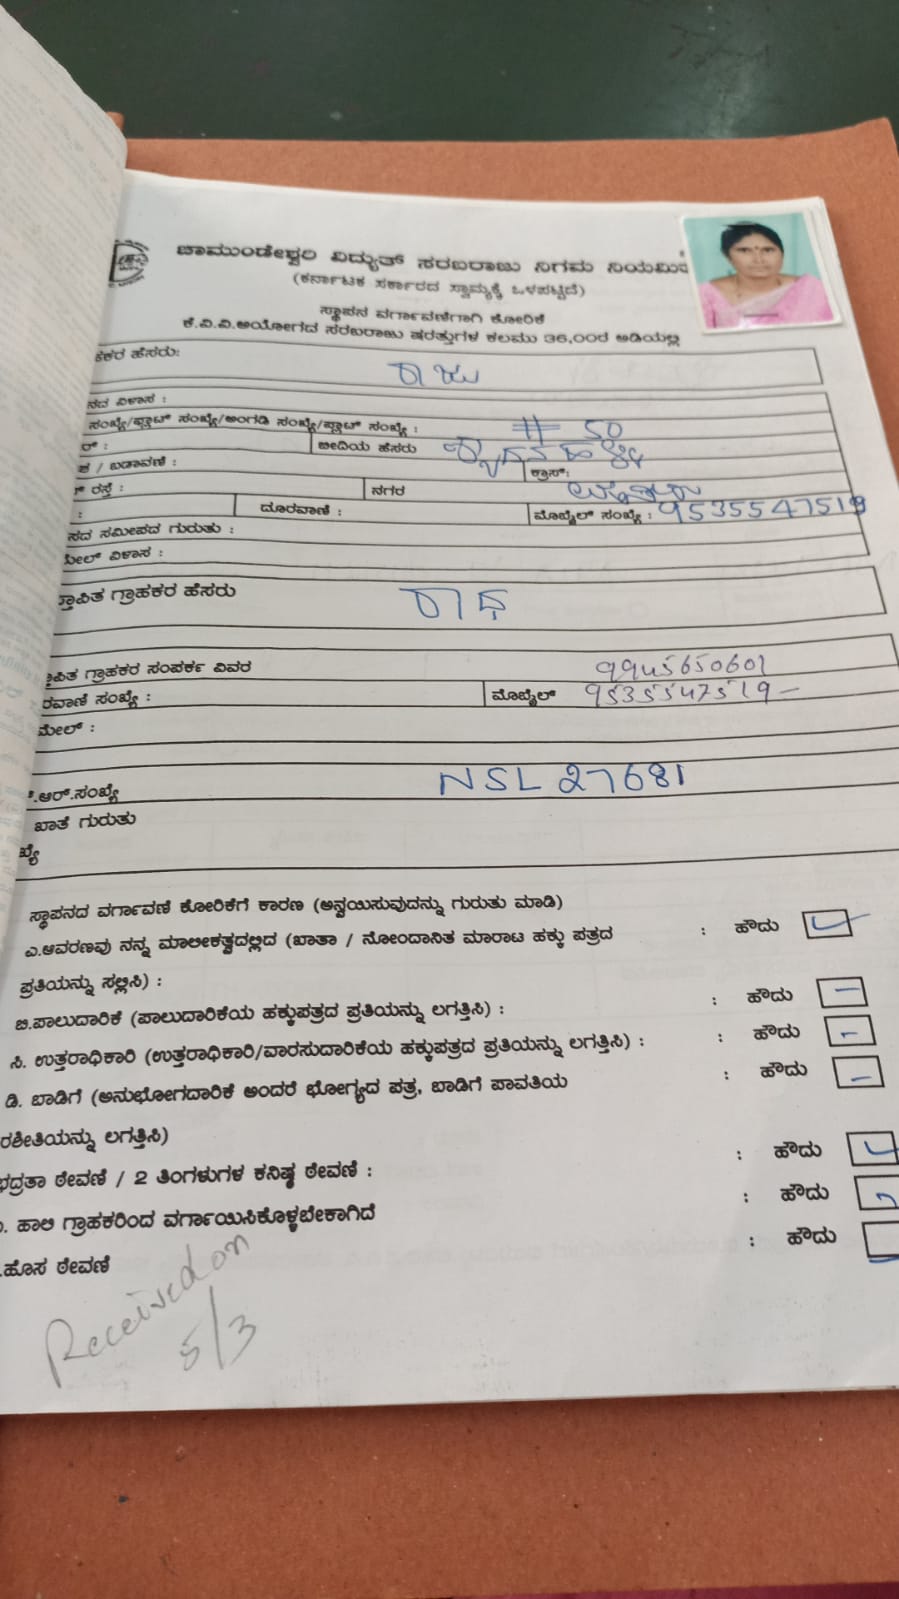 ಚಾಮುಂಡೇಶ್ವರಿ ವಿದ್ಯುತ್ ಸರಬರಾಜು ನಿಗಮ ನಿಯಮಿತ
(ಕರ್ನಾಟಕ ಸರ್ಕಾರದ ಸ್ವಾಮ್ಯಕ್ಕೆ ಒಳಪಟ್ಟಿದೆ)
ಸ್ಥಾಪನ ವರ್ಗಾವಣೆಗಾಗಿ ಕೋರಿಕೆ
ಕೆ.ವಿ.ವಿ.ಆಯೋಗದ ಸರಬರಾಜು ಷರತ್ತುಗಳ ಕಲಮು 36,00ರ ಅಡಿಯಲ್ಲಿ
ಕರ ಹೆಸರು:
ರಾಜು
ನದ ವಿಳಾಸ :
ಸಂಖ್ಯೆ/ಪ್ಲಾಟ್ ಸಂಖ್ಯೆ/ಅಂಗಡಿ ಸಂಖ್ಯೆ/ಪ್ಲಾಟ್ ಸಂಖ್ಯೆ : # 50
ರ್ : ಬೀದಿಯ ಹೆಸರು
/ ಬಡಾವಣೆ : ಕ್ರಾಸ್:
ರಸ್ತೆ : ನಗರ
: ದೂರವಾಣಿ : ಮೊಬೈಲ್ ಸಂಖ್ಯೆ : 9535547519
ಸದ ಸಮೀಪದ ಗುರುತು :
ಮೇಲ್ ವಿಳಾಸ :
ಸ್ತಾಪಿತ ಗ್ರಾಹಕರ ಹೆಸರು ರಾಧ
ಾಪಿತ ಗ್ರಾಹಕರ ಸಂಪರ್ಕ ವಿವರ 9945650601
ರವಾಣಿ ಸಂಖ್ಯೆ : ಮೊಬೈಲ್ 9535547519
ಮೇಲ್ :
.ಆರ್.ಸಂಖ್ಯೆ NSL 27681
ಖಾತೆ ಗುರುತು
ಖ್ಯೆ
ಸ್ಥಾಪನದ ವರ್ಗಾವಣೆ ಕೋರಿಕೆಗೆ ಕಾರಣ (ಅನ್ವಯಿಸುವುದನ್ನು ಗುರುತು ಮಾಡಿ)
ಎ.ಆವರಣವು ನನ್ನ ಮಾಲೀಕತ್ವದಲ್ಲಿದೆ (ಖಾತಾ / ನೋಂದಾನಿತ ಮಾರಾಟ ಹಕ್ಕು ಪತ್ರದ : ಹೌದು
ಪ್ರತಿಯನ್ನು ಸಲ್ಲಿಸಿ) :
ಬಿ.ಪಾಲುದಾರಿಕೆ (ಪಾಲುದಾರಿಕೆಯ ಹಕ್ಕುಪತ್ರದ ಪ್ರತಿಯನ್ನು ಲಗತ್ತಿಸಿ) : : ಹೌದು
ಸಿ. ಉತ್ತರಾಧಿಕಾರಿ (ಉತ್ತರಾಧಿಕಾರಿ/ವಾರಸುದಾರಿಕೆಯ ಹಕ್ಕುಪತ್ರದ ಪ್ರತಿಯನ್ನು ಲಗತ್ತಿಸಿ) : : ಹೌದು
ಡಿ. ಬಾಡಿಗೆ (ಅನುಭೋಗದಾರಿಕೆ ಅಂದರೆ ಭೋಗ್ಯದ ಪತ್ರ, ಬಾಡಿಗೆ ಪಾವತಿಯ : ಹೌದು
ರಶೀತಿಯನ್ನು ಲಗತ್ತಿಸಿ)
ಭದ್ರತಾ ಠೇವಣಿ / 2 ತಿಂಗಳುಗಳ ಕನಿಷ್ಠ ಠೇವಣಿ : : ಹೌದು
. ಹಾಲಿ ಗ್ರಾಹಕರಿಂದ ವರ್ಗಾಯಿಸಿಕೊಳ್ಳಬೇಕಾಗಿದೆ : ಹೌದು
.ಹೊಸ ಠೇವಣಿ : ಹೌದು
Received on
5/3